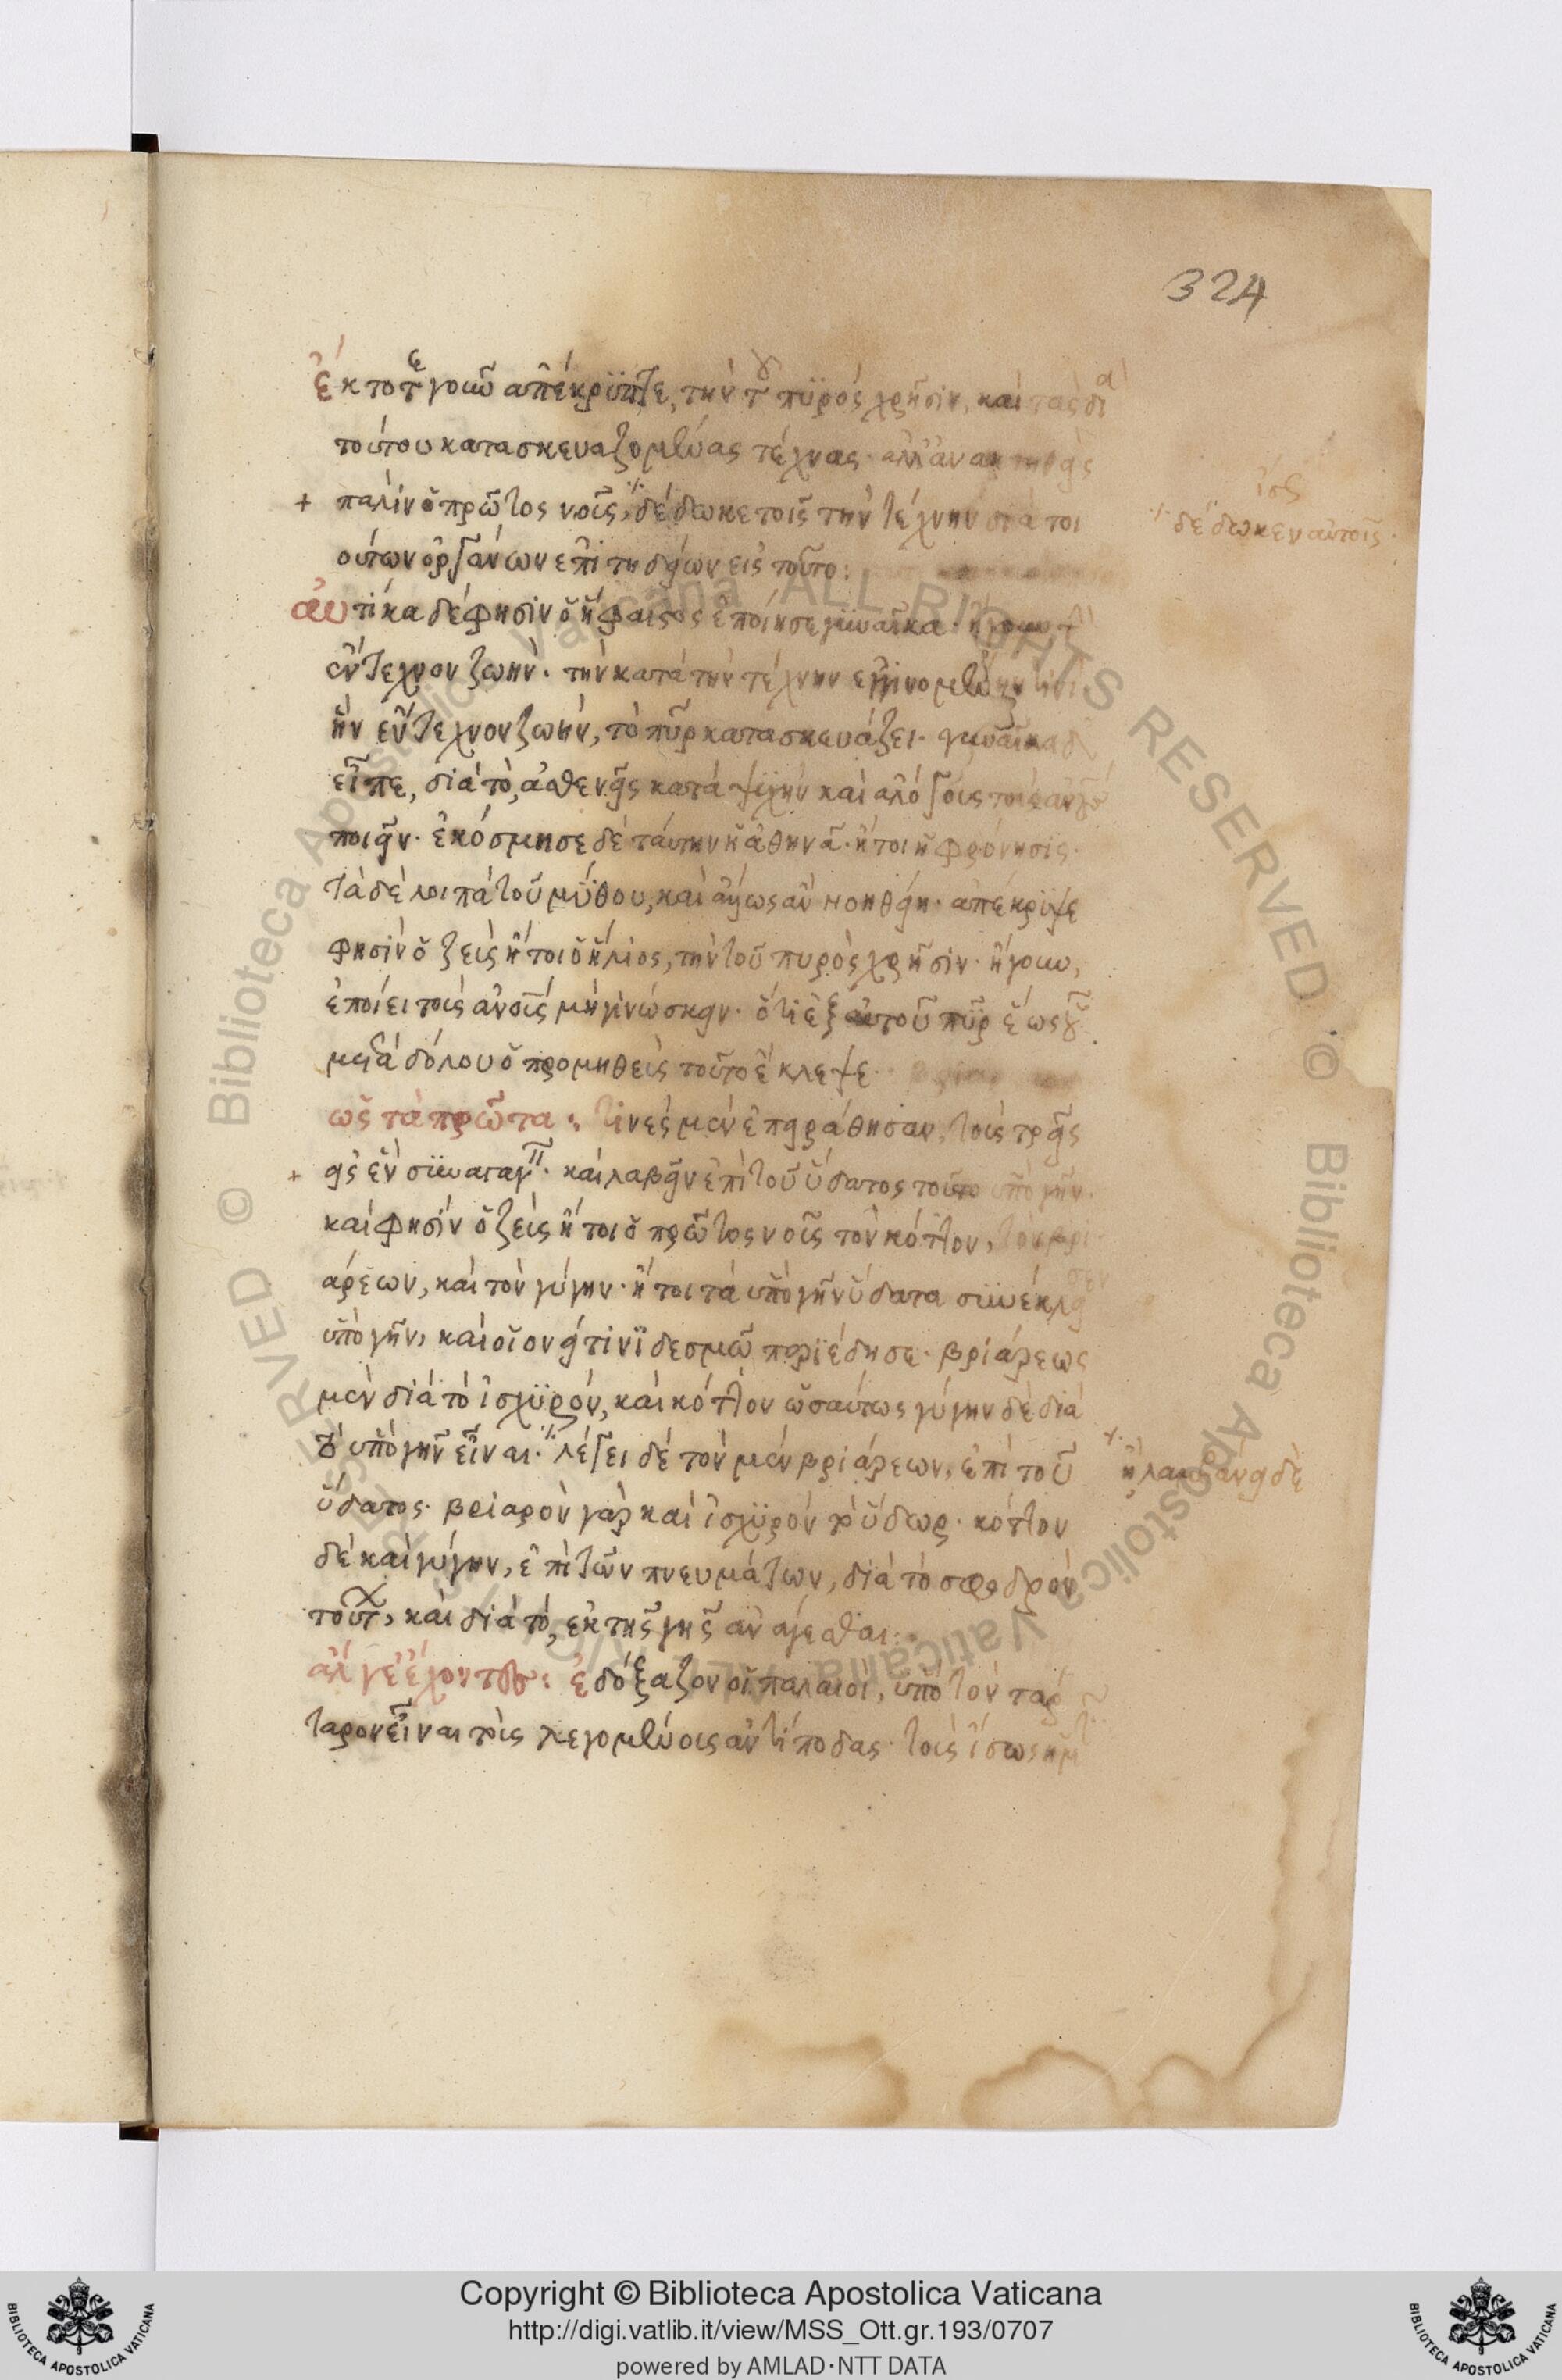 324
ἐκτότε γοῦν ἀπέκρυπτε, τὴν τοῦ πυρὸς χρῆσιν, καὶ τὰς διὰ
τούτου κατασκευαζομένας τέχνας· ἀλλ' ἀνακτηθεὶς
+ πάλιν ὁ πρῶτος νοῦς, δέδωκε τοῖς τὴν τέχνην διὰ τοι
ἴσως
δέδωκεν αὐτοῖς·
ούτων ὀργάνων ἐπιτηδείων εἰς τοῦτο:
αὐτίκα δέ φησιν ὁ ἥφαιστος ἐποίησε γυναῖκα· ἤγουν τὴν
ἔντεχνον ζωήν· τὴν κατὰ τὴν τέχνην ἐγγινομένην
ἣν ἔντεχνον ζωήν, τὸ πῦρ κατασκευάζει· γυναῖκα δὲ
εἶπε, διὰ τὸ, ἀσθενεῖς κατὰ ψυχὴν καὶ ἀλόγους τοὺς
ποιεῖν· ἐκόσμησε δὲ ταύτην ἡ ἀθηνᾶ· ἤτοι ἡ φρόνησις·
τὰ δὲ λοιπὰ τοῦ μύθου, καὶ ἄλλως ἂν νοηθείη· ἀπέκρυψε
φησὶν ὁ ζεὺς ἤτοι ὁ ἥλιος, τὴν τοῦ πυρὸς χρῆσιν· ἤγουν,
ἐποίει τοὺς ἀνους μὴ γινώσκειν· ὅτι ἐξ αὐτοῦ πῦρ ἕως οὗ
μετὰ δόλου ὁ προμηθεὺς τοῦτο ἔκλεψε·
ὡς τὰ πρῶτα: τινὲς μὲν ἐπειράθησαν, τοὺς τρεῖς
+ εἰς ἓν συναγαγεῖν· καὶ λαβεῖν ἐπὶ τοῦ ὕδατος τοῦτο ὑπὸ γῆν·
καὶ φησὶν ὁ ζεὺς ἤτοι ὁ πρῶτος νοῦς τὸν κόττον, τὸν βρι
άρεων, καὶ τὸν γύγην· ἤτοι τὰ ὑπὸ γῆν ὕδατα συνέκλεισεν
ὑπὸ γῆν, καὶ οἷονεί τινι δεσμῷ περιέδησε· βριάρεως
μὲν διὰ τὸ ἰσχυρόν, καὶ κόττον ὡσαύτως γύγην δὲ διὰ
τὸ ὑπὸ γῆν εἶναι· λέγει δὲ τὸν μὲν βριάρεων, ἐπὶ τοῦ
ἢ λαμβάνει δὲ
ὕδατος· βριαρὸν γὰρ καὶ ἰσχυρὸν τὸ ὕδωρ· κόττον
δὲ καὶ γύγην, ἐπὶ τῶν πνευμάτων, διὰ τὸ σφοδρὸν
τούτων, καὶ διὰ τὸ, ἐκ τῆς γῆς ἀνάγεσθαι:
ἄλγε' ἔχοντες: ἐδόξαζον οἱ παλαιοί, ὑπὸ τὸν τάρ
ταρον εἶναι τοὺς λεγομένους ἀντίποδας· τοὺς ἴσως
Copyright © Biblioteca Apostolica Vaticana
http://digi.vatlib.it/view/MSS_Ott.gr.193/0707
powered by AMLAD·NTT DATA